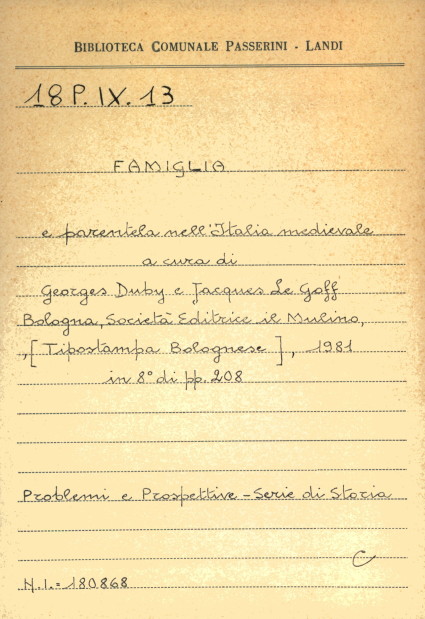 BIBLIOTECA COMUNALE PASSERINI - LANDI
18 P. IX. 13
FAMIGLIA
e parentela nell'Italia medievale
a cura di
Georges Duby e Jacques Le Goff
Bologna, Società Editrice il Mulino,
,[Tipostampa Bolognese], 1981
in 8° di pp. 208
Problemi e Prospettive - Serie di Storia
C
N.I.= 180868